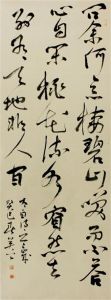 問余何意棲碧山笑而不答
心自閑桃花流水窅然去
別有天地非人間